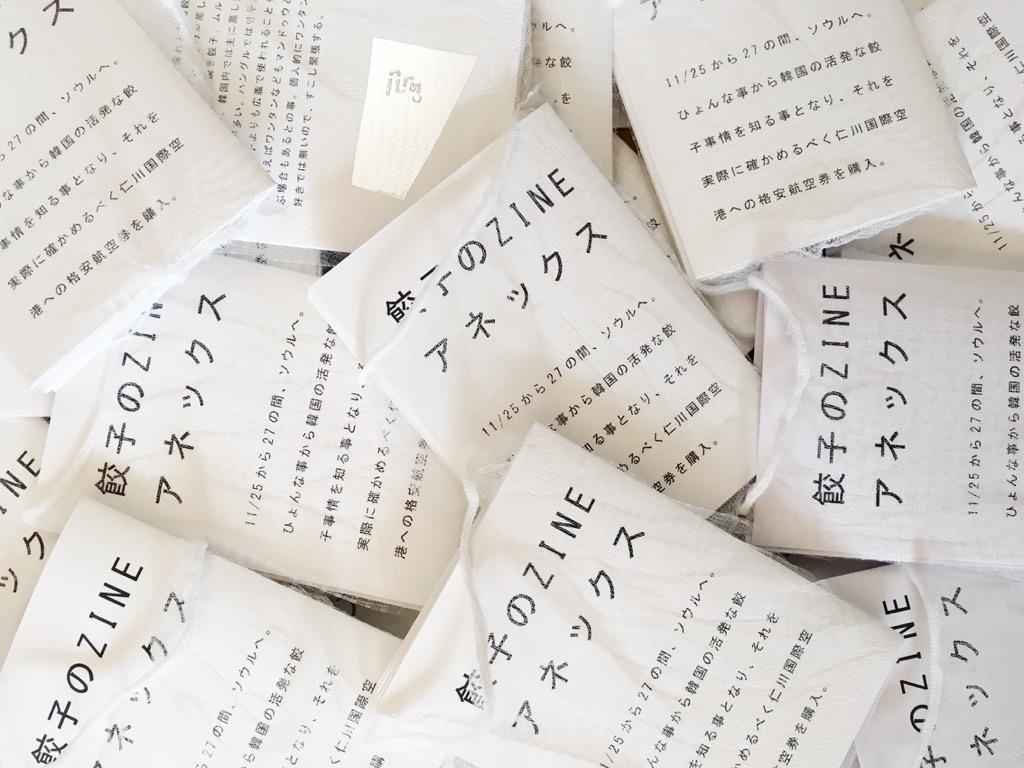 クス
ら27の間、ソウルへ。
な事から韓国の活発な餃
事情を知る事となり、それを
実際に確かめるべく仁川国際空
港への格安航空券を購入。
韓国内では主に蒸し
多い。ハングルでは
よりも広義で使われること
えばワンタンなどもマンドゥと
ぶ場合もあるとの事。個人的にワンタン
好きでは無いので、すこし緊張する。
11/25から27の間、ソウルへ。
ひょんな事から韓国の活発な餃
子事情を知る事となり、それを
実際に確かめるべく仁川国際空
港への格安航空券を購入。
餃子のZINE
アネックス
11/25から27の間、ソウルへ。
な事から韓国の活発な餃
知る事となり、それを
かめるべく仁川国際空
空券を購入。
餃子のZIN
アネックス
11/25から27の間、ソウルへ。
ひょんな事から韓国の活発な餃
子事情を知る事となり
実際に確かめるべく仁川国
港への格安航空券
餃子のZINE
アネックス
11/25から27の間、ソウルへ。
ひょんな事から韓国の活発な餃
餃子のZINE
アネックス
27の間、ソウルへ。
韓国の活発な餃
となり、それを
仁川国際空
餃子のZINE
アネックス
11/25から27の間、ソウルへ。
んな事から韓国の活発な餃
を知る事となり、それを
確かめるべく仁川国際空
安航空券を購入。
子のZINE
ネックス
INE
ックス